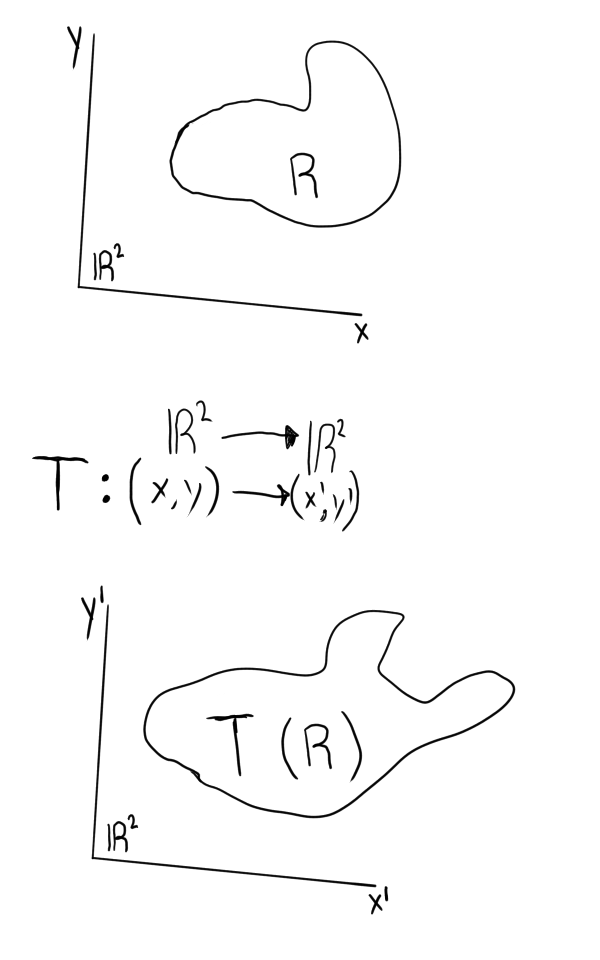 y
R
ℝ²
x
ℝ² → ℝ²
T : (x, y) → (x', y')
y'
T (R)
ℝ²
x'